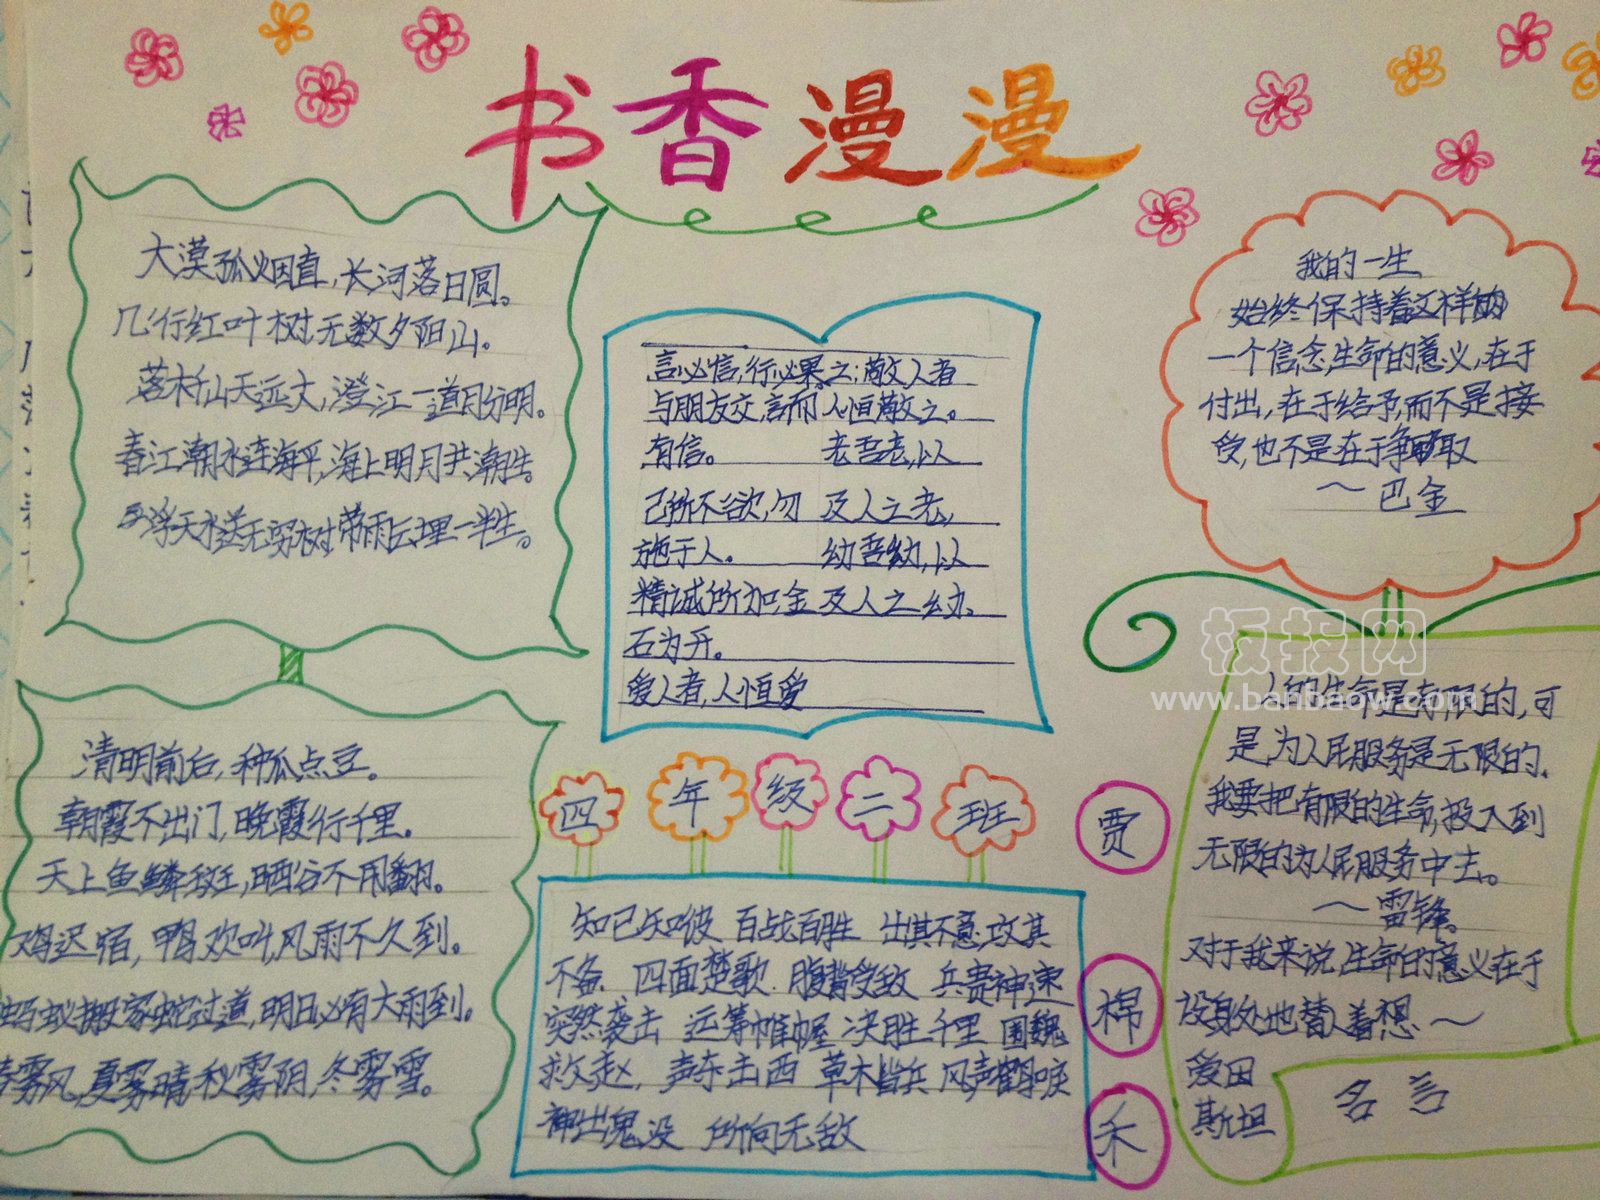 书香漫漫
大漠孤烟直,长河落日圆。
几行红叶树,无数夕阳山。
落木千山天远大,澄江一道月分明。
春江潮水连海平,海上明月共潮生。
浮天水送无穷树,带雨云埋一半生。
言必信,行必果。之;敬人者
与朋友交,言而 人恒敬之。
有信。 老吾老,以
己所不欲,勿 及人之老,
施于人。 幼吾幼,以
精诚所加,金 及人之幼。
石为开。
爱人者,人恒爱
我的一生
始终保持着这样的
一个信念,生命的意义,在于
付出,在于给予,而不是接
受,也不是在于争取
～巴金
清明前后,种瓜点豆。
朝霞不出门,晚霞行千里。
天上鱼鳞斑,晒谷不用翻。
鸡迟宿,鸭欢叫,风雨不久到。
蚂蚁搬家蛇过道,明日必有大雨到。
春雾风,夏雾晴,秋雾阴,冬雾雪。
四年级二班
贾棉禾
知己知彼 百战百胜 出其不意,攻其
不备. 四面楚歌. 腹背受敌 兵贵神速
突然袭击 运筹帷幄 决胜千里 围魏
救赵, 声东击西 草木皆兵 风声鹤唳
神出鬼没 所向无敌
人的生命是有限的,可
是,为人民服务是无限的.
我要把有限的生命,投入到
无限的为人民服务中去。
～雷锋
对于我来说,生命的意义在于
设身处地替人着想～
爱因
斯坦
名言
板报网
www.banbaow.com